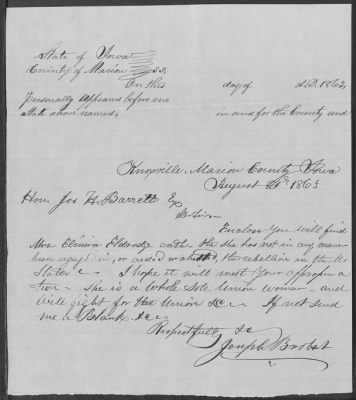 State of Iowa
County of Marion } SS,
On this day of A.D. 1863,
Personally Appeared before me in and for the County and
State above named,
Knoxville, Marion County Iowa
August 1863
Hon. Jos H. Barrett
Enclose You will find
Mrs. Elmira Eldredge oath that she has not in any manner
been engaged in, or aided the rebellion in the U
States I hope it will meet Your
She is a Whole Sole Union Woman and
Will fight for the Union &c If not send
me a Blank &c
Respectfully &c
Joseph Brobst